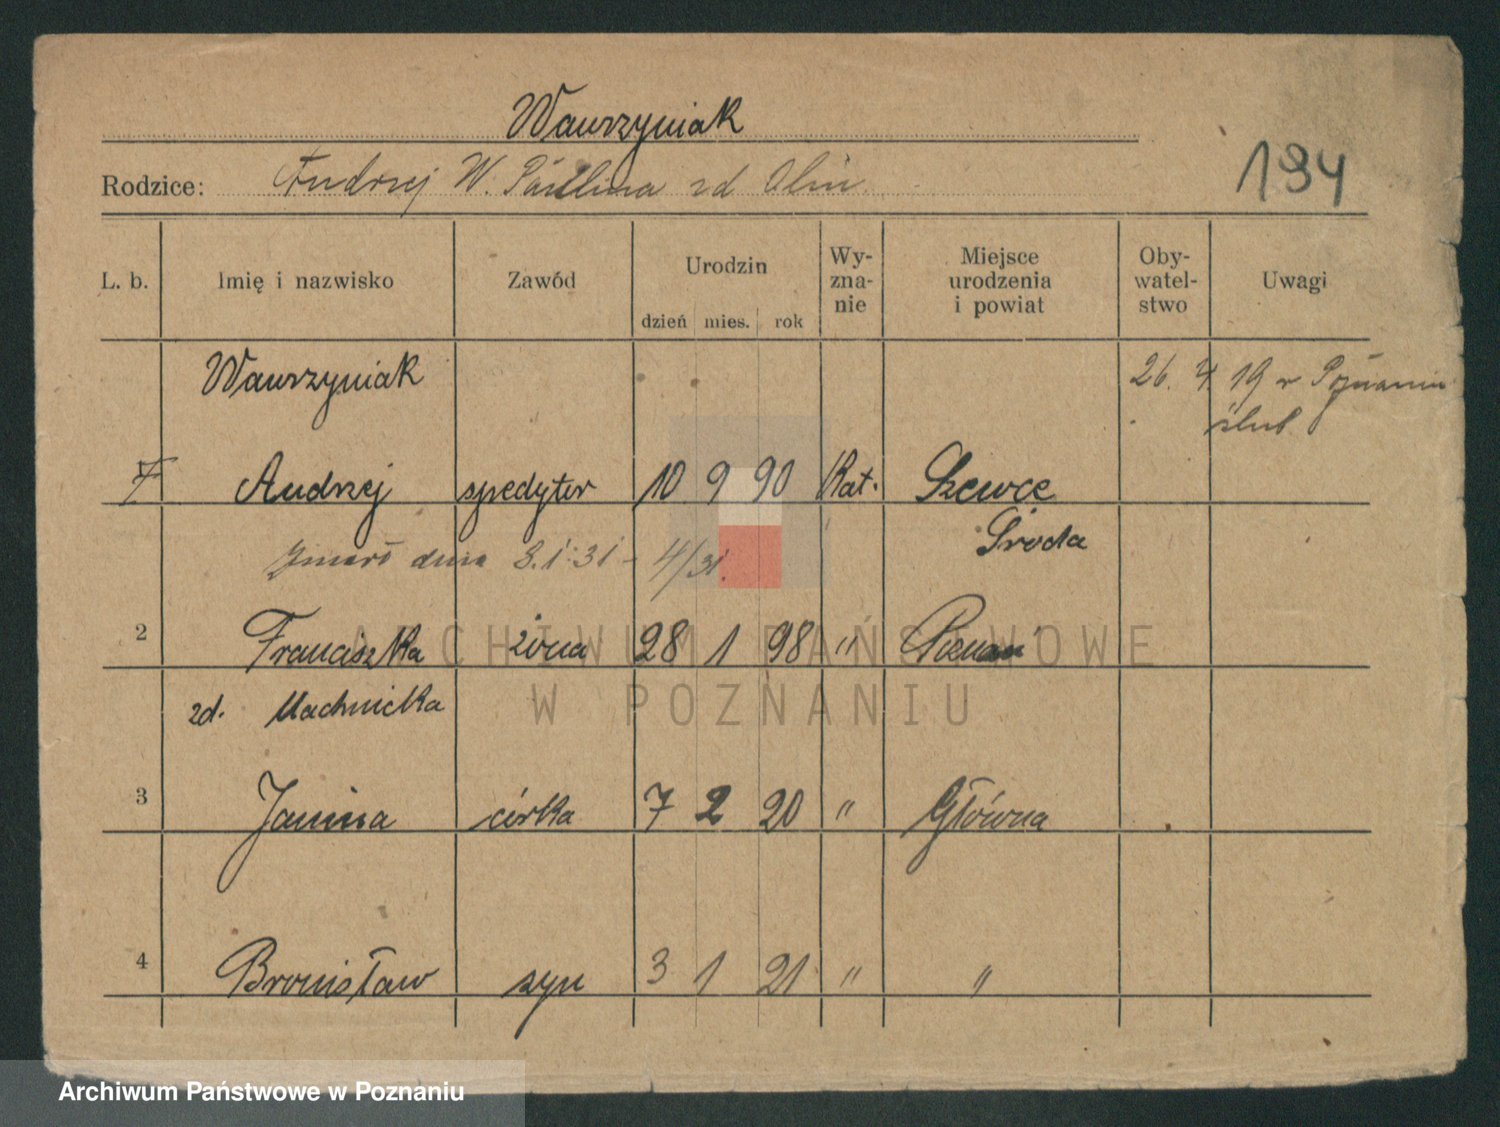 Wawrzyniak
194
Rodzice: Andrzej W. Paulina zd Olin
L. b. Imię i nazwisko Zawód Urodzin dzień mies. rok Wy-zna-nie Miejsce urodzenia i powiat Oby-watel-stwo Uwagi
Wawrzyniak 26. 4. 19 w Poznaniu
ślub
Andrzej spedytor 10 9 90 Kat. Szewce
Środa
Zmarł dnia 8.1.31 - 4/31.
2 Franciszka żona 28 1 98 " Poznań
zd. Machnicka
3 Janina córka 7 2 20 " Główna
4 Bronisław syn 3 1 21 " "
ARCHIWUM PAŃSTWOWE
W POZNANIU
Archiwum Państwowe w Poznaniu